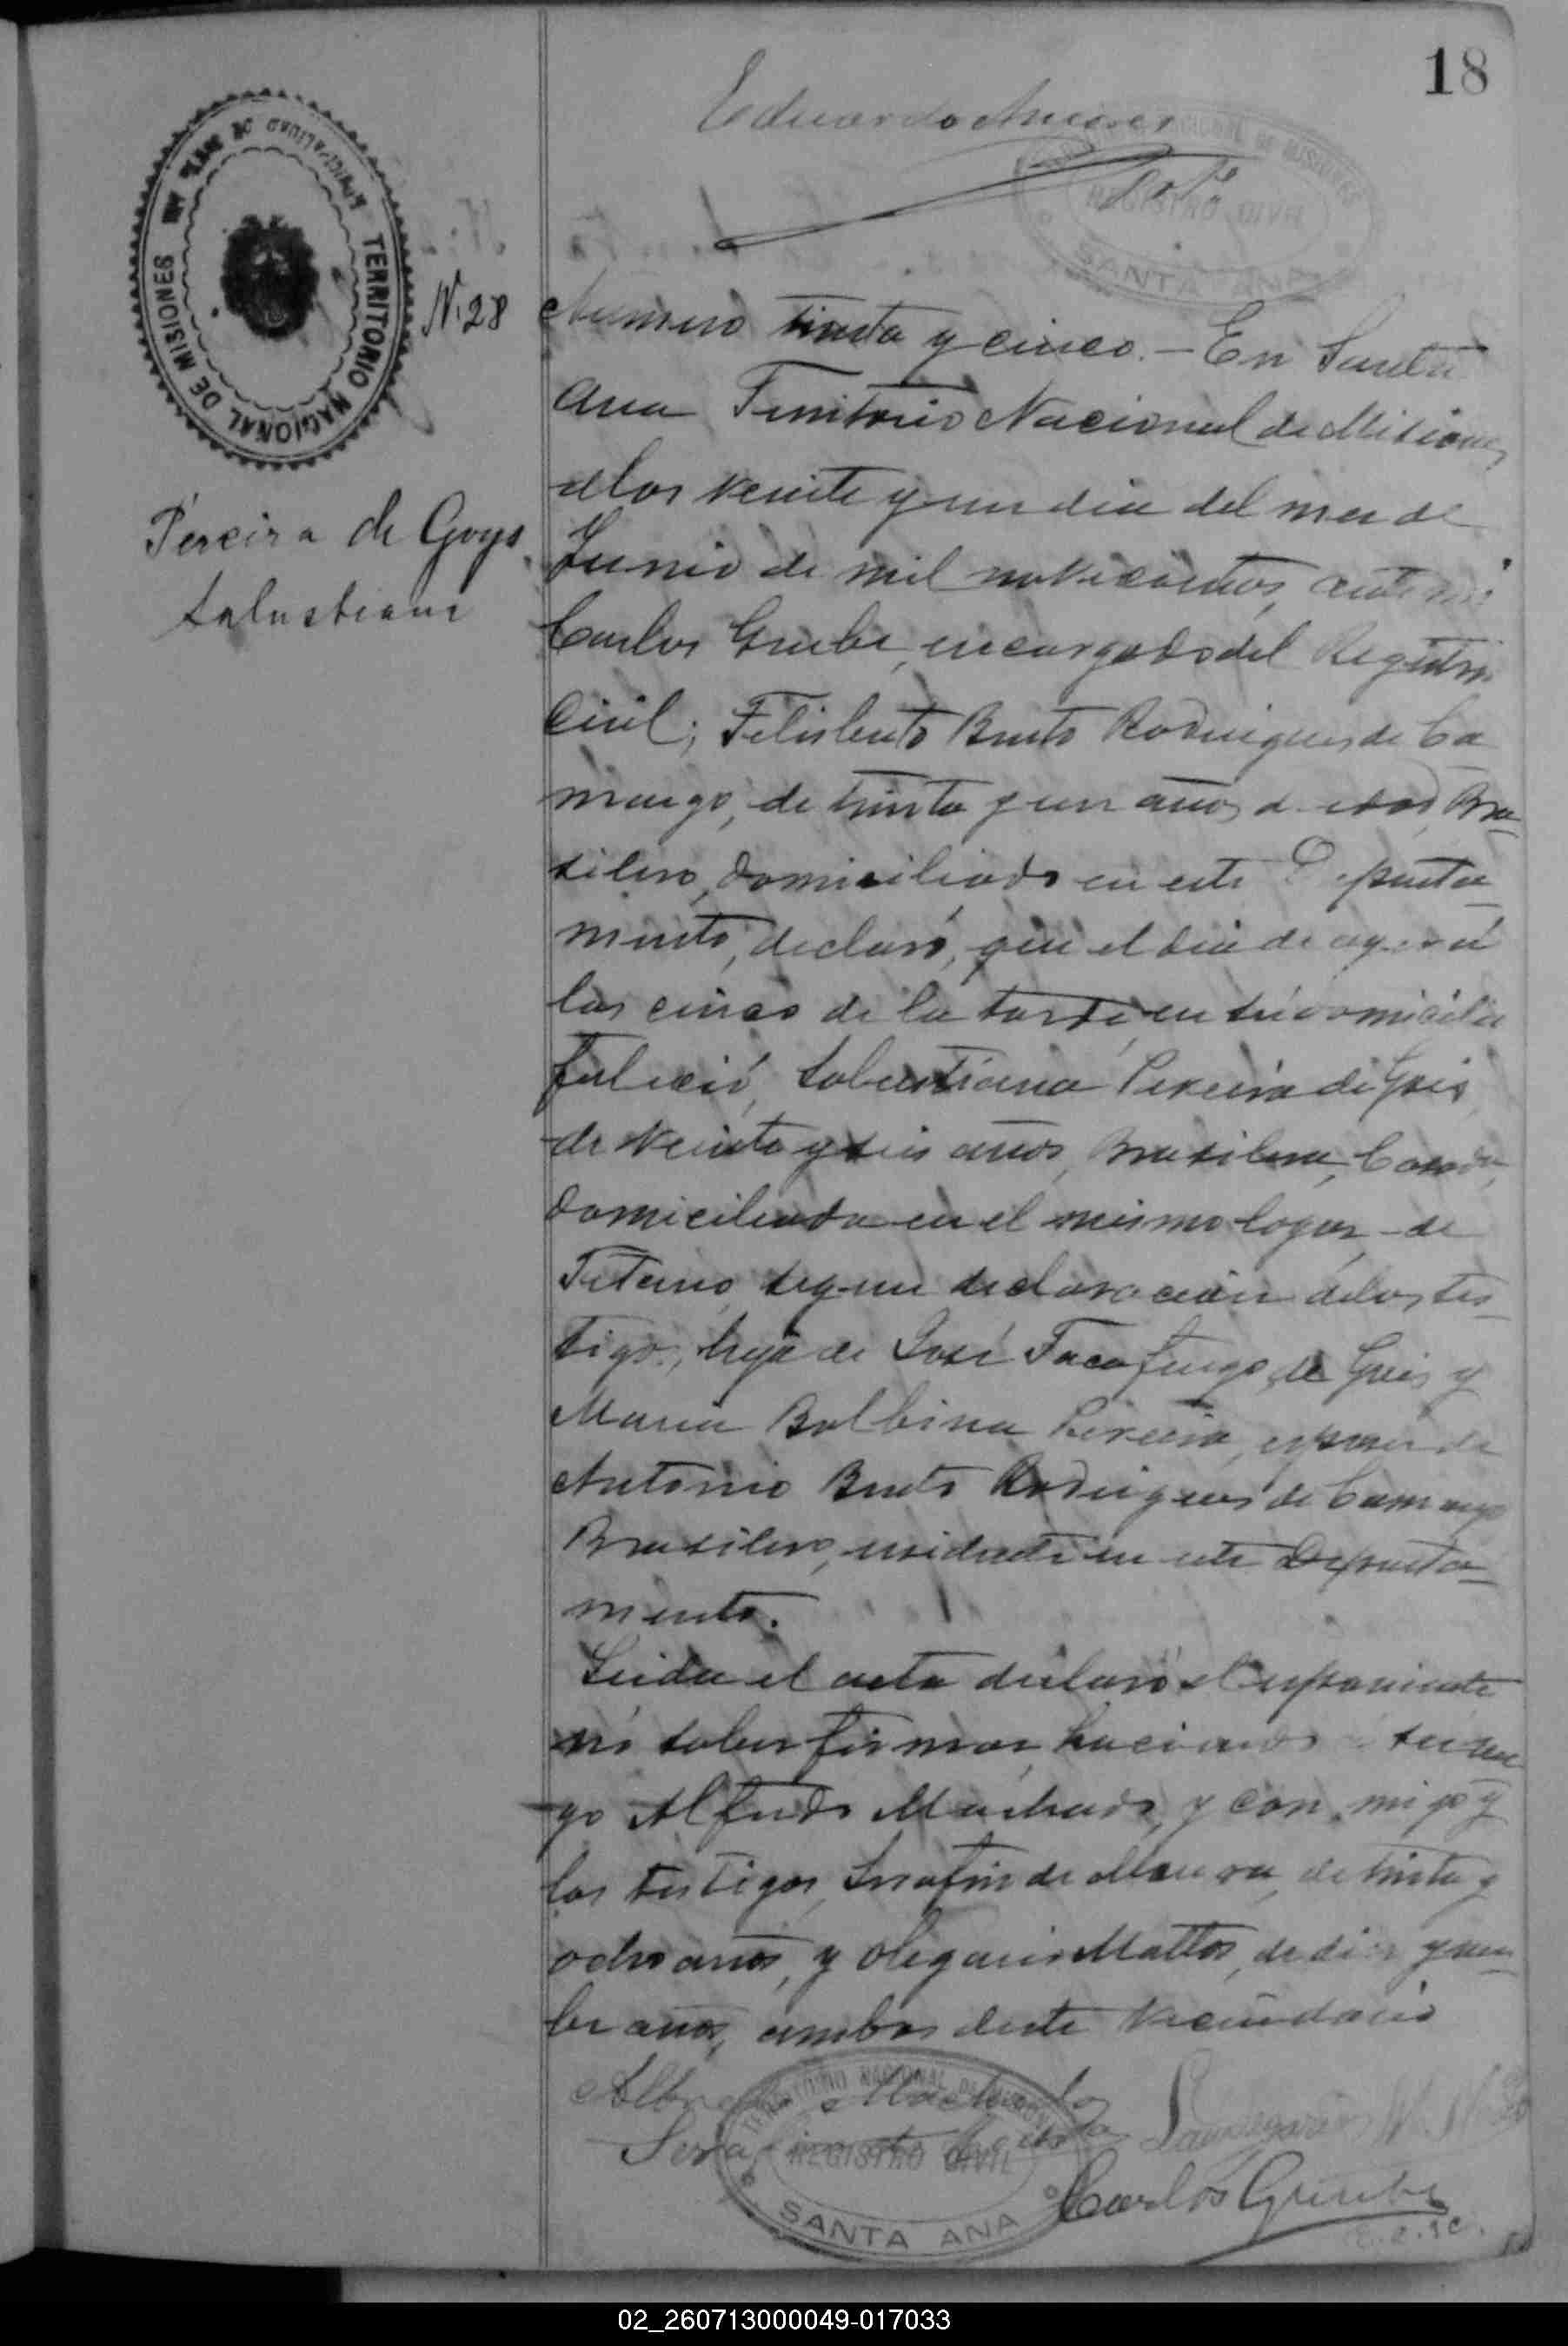 18
Eduardo
TERRITORIO NACIONAL DE MISIONES
REGISTRO CIVIL
SANTA ANA
MUNICIPALIDAD DE SANTA ANA
TERRITORIO NACIONAL DE MISIONES
N. 28
Pereira de Goys
Salustiana
Numero treinta y cinco. — En Santa
Ana Territorio Nacional de Misiones
a los veinte y un dia del mes de
Junio de mil novecientos, ante mi
Carlos Grube, encargado del Registro
Civil; Felisberto Bento Rodrigues de Ca
margo, de treinta y un años de edad, Bra-
silero, domiciliado en este Departa-
mento, declaró, que el dia de ayer á
las cinco de la tarde, en su domicilio
falleció, Salustiana Pereira de Gois
de veinte y seis años, Brasilera, Casada,
domiciliada en el mismo logar, de
Tetano, segun declaracion de los tes-
tigos, hija de José Tacafuego de Gois y
Maria Balbina Pereira, esposa de
Antonio Bento Rodrigues de Camargo
Brasilero, residente en este Departa-
mento.
Leida el acta declaró el esponente
no saber firmar, haciendo á su rue-
go Alfredo Machado, y con migo y
los testigos, Serafin de Moura, de treinta y
ocho años, y Olegario Mattos, de diez y nue-
be años, ambos deste vecindario
Machado
TERRITORIO NACIONAL DE MISIONES
REGISTRO CIVIL
SANTA ANA
Carlos Grube
E. d. R. C.
02_260713000049-017033